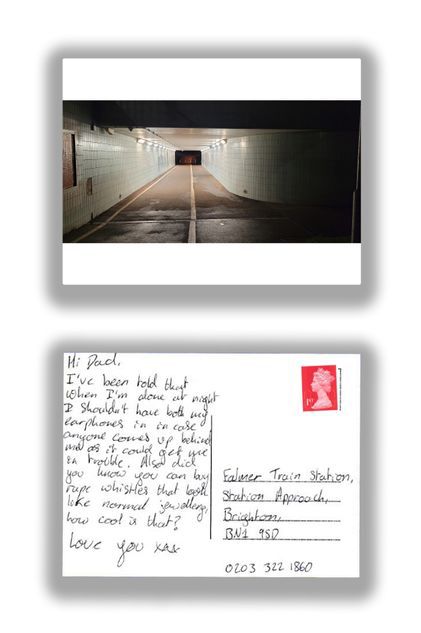 Hi Dad,
I've been told that
when I'm alone at night
I shouldn't have both my
earphones in in case
anyone comes up behind
me as it could get me
in trouble. Also did
you know you can buy
rape whistles that look
like normal jewellery,
how cool is that?
Love you xxx
1st
Falmer Train Station,
Station Approach,
Brighton,
BN1 9SD
0203 322 1860